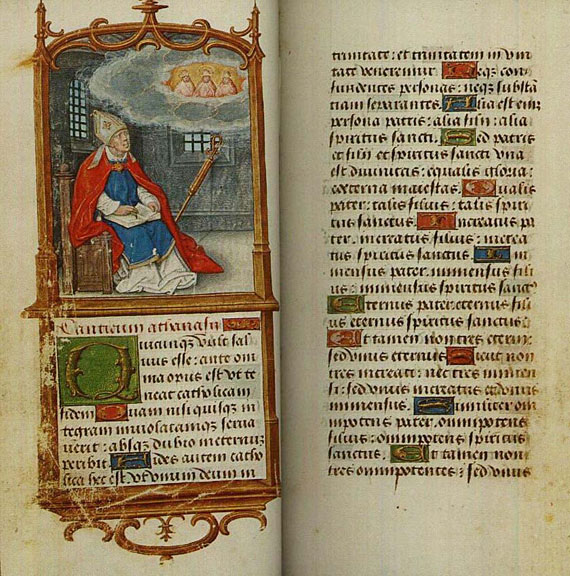 Canticum athanasii
Quicunq; vult sal
uus esse: ante om
nia opus est vt te
neat catholicam
fidem Quam nisi quisq; in
tegram inuiolatamq; serua
uerit: absq; dubio in eternum
peribit. Fides autem catho
lica hec est: vt vnum deum in
trinitate: et trinitatem in vni
tate veneremur. Neq; con
fundentes personas: neq; substā
tiam separantes. Alia est enim
persona patris: alia filii: alia
spiritus sancti. Sed patris
et filii et spiritus sancti vna
est diuinitas: equalis gloria:
coeterna maiestas. Qualis
pater: talis filius: talis spiri
tus sanctus. Increatus pa
ter: increatus filius: increa
tus spiritus sanctus. Im
mensus pater: immensus fili
us: immensus spiritus sanct9
Eternus pater: eternus fili
us: eternus spiritus sanctus.
Et tamen non tres eterni:
sed vnus eternus. Sicut non
tres increati: nec tres immen
si: sed vnus increatus et vnus
immensus. Similiter om
nipotens pater: omnipotens
filius: omnipotens spiritus
sanctus. Et tamen non
tres omnipotentes: sed vnus